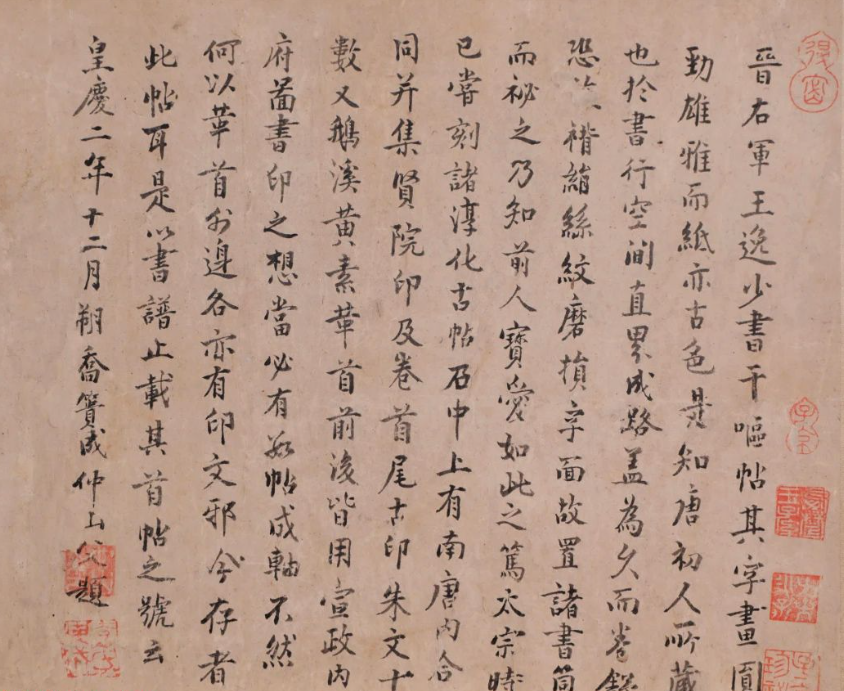 晉右軍王逸少書干嘔帖其字畫圓
勁雄雅而紙亦古色是知唐初人所藏
也於書行空間直界成路蓋為久而卷
恐 褙綃絲紋磨損字面故置諸書筒
而祕之乃知前人寶愛如此之篤太宗時
已嘗刻諸淳化古帖石中上有南唐內合
同并集賢院印及卷首尾古印朱文十
數又鵝溪黃素華首前後皆用宣政內
府啚書印之想當必有數帖成軸不然
何以華首外邊各亦有印文邪今存者
此帖耳是以書譜止載其首帖之號云
皇慶二年十二月朔喬簣成仲山父題